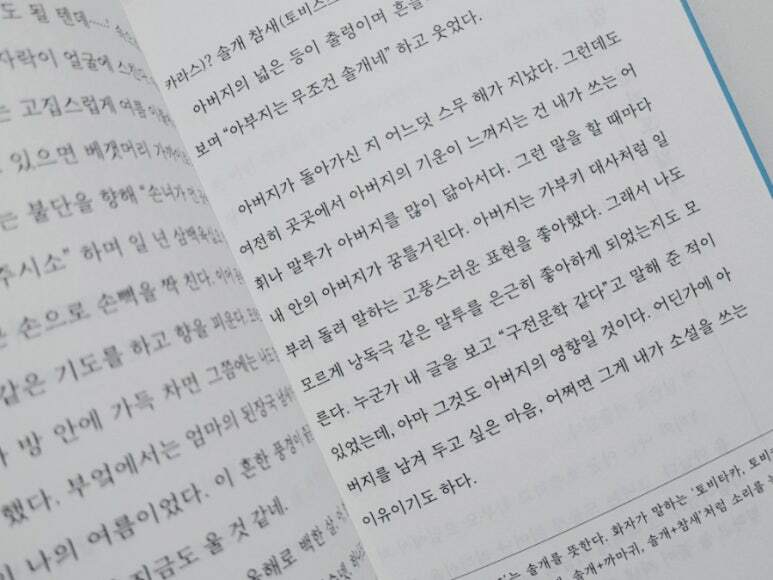 도 될 텐데……' 속으
자락이 얼굴에 스친
는 고집스럽게 여름 이불
있으면 베갯머리 가까이
는 불단을 향해 "손녀가
주시소" 하며 일 년 삼백육십
은 손으로 손뼉을 짝 친다. 이어
같은 기도를 하고 향을 피운다.
방 안에 가득 차면 그쯤에는 나도
했다. 부엌에서는 엄마의 된장국 냄새
나의 여름이었다. 이 흔한 풍경이
지금도 올 것 같네.
올해로 백한 살.
카라스)? 솔개 참새(토비스
아버지의 넓은 등이 출렁이며 흔들
보며 "아부지는 무조건 솔개네" 하고 웃었다.
아버지가 돌아가신 지 어느덧 스무 해가 지났다. 그런데도
여전히 곳곳에서 아버지의 기운이 느껴지는 건 내가 쓰는 어
휘나 말투가 아버지를 많이 닮아서다. 그런 말을 할 때마다
내 안의 아버지가 꿈틀거린다. 아버지는 가부키 대사처럼 일
부러 돌려 말하는 고풍스러운 표현을 좋아했다. 그래서 나도
모르게 낭독극 같은 말투를 은근히 좋아하게 되었는지도 모
른다. 누군가 내 글을 보고 "구전문학 같다"고 말해 준 적이
있었는데, 아마 그것도 아버지의 영향일 것이다. 어딘가에 아
버지를 남겨 두고 싶은 마음, 어쩌면 그게 내가 소설을 쓰는
이유이기도 하다.
는 솔개를 뜻한다. 화자가 말하는 '토비타카, 토비
솔개+까마귀, 솔개+참새'처럼 소리를